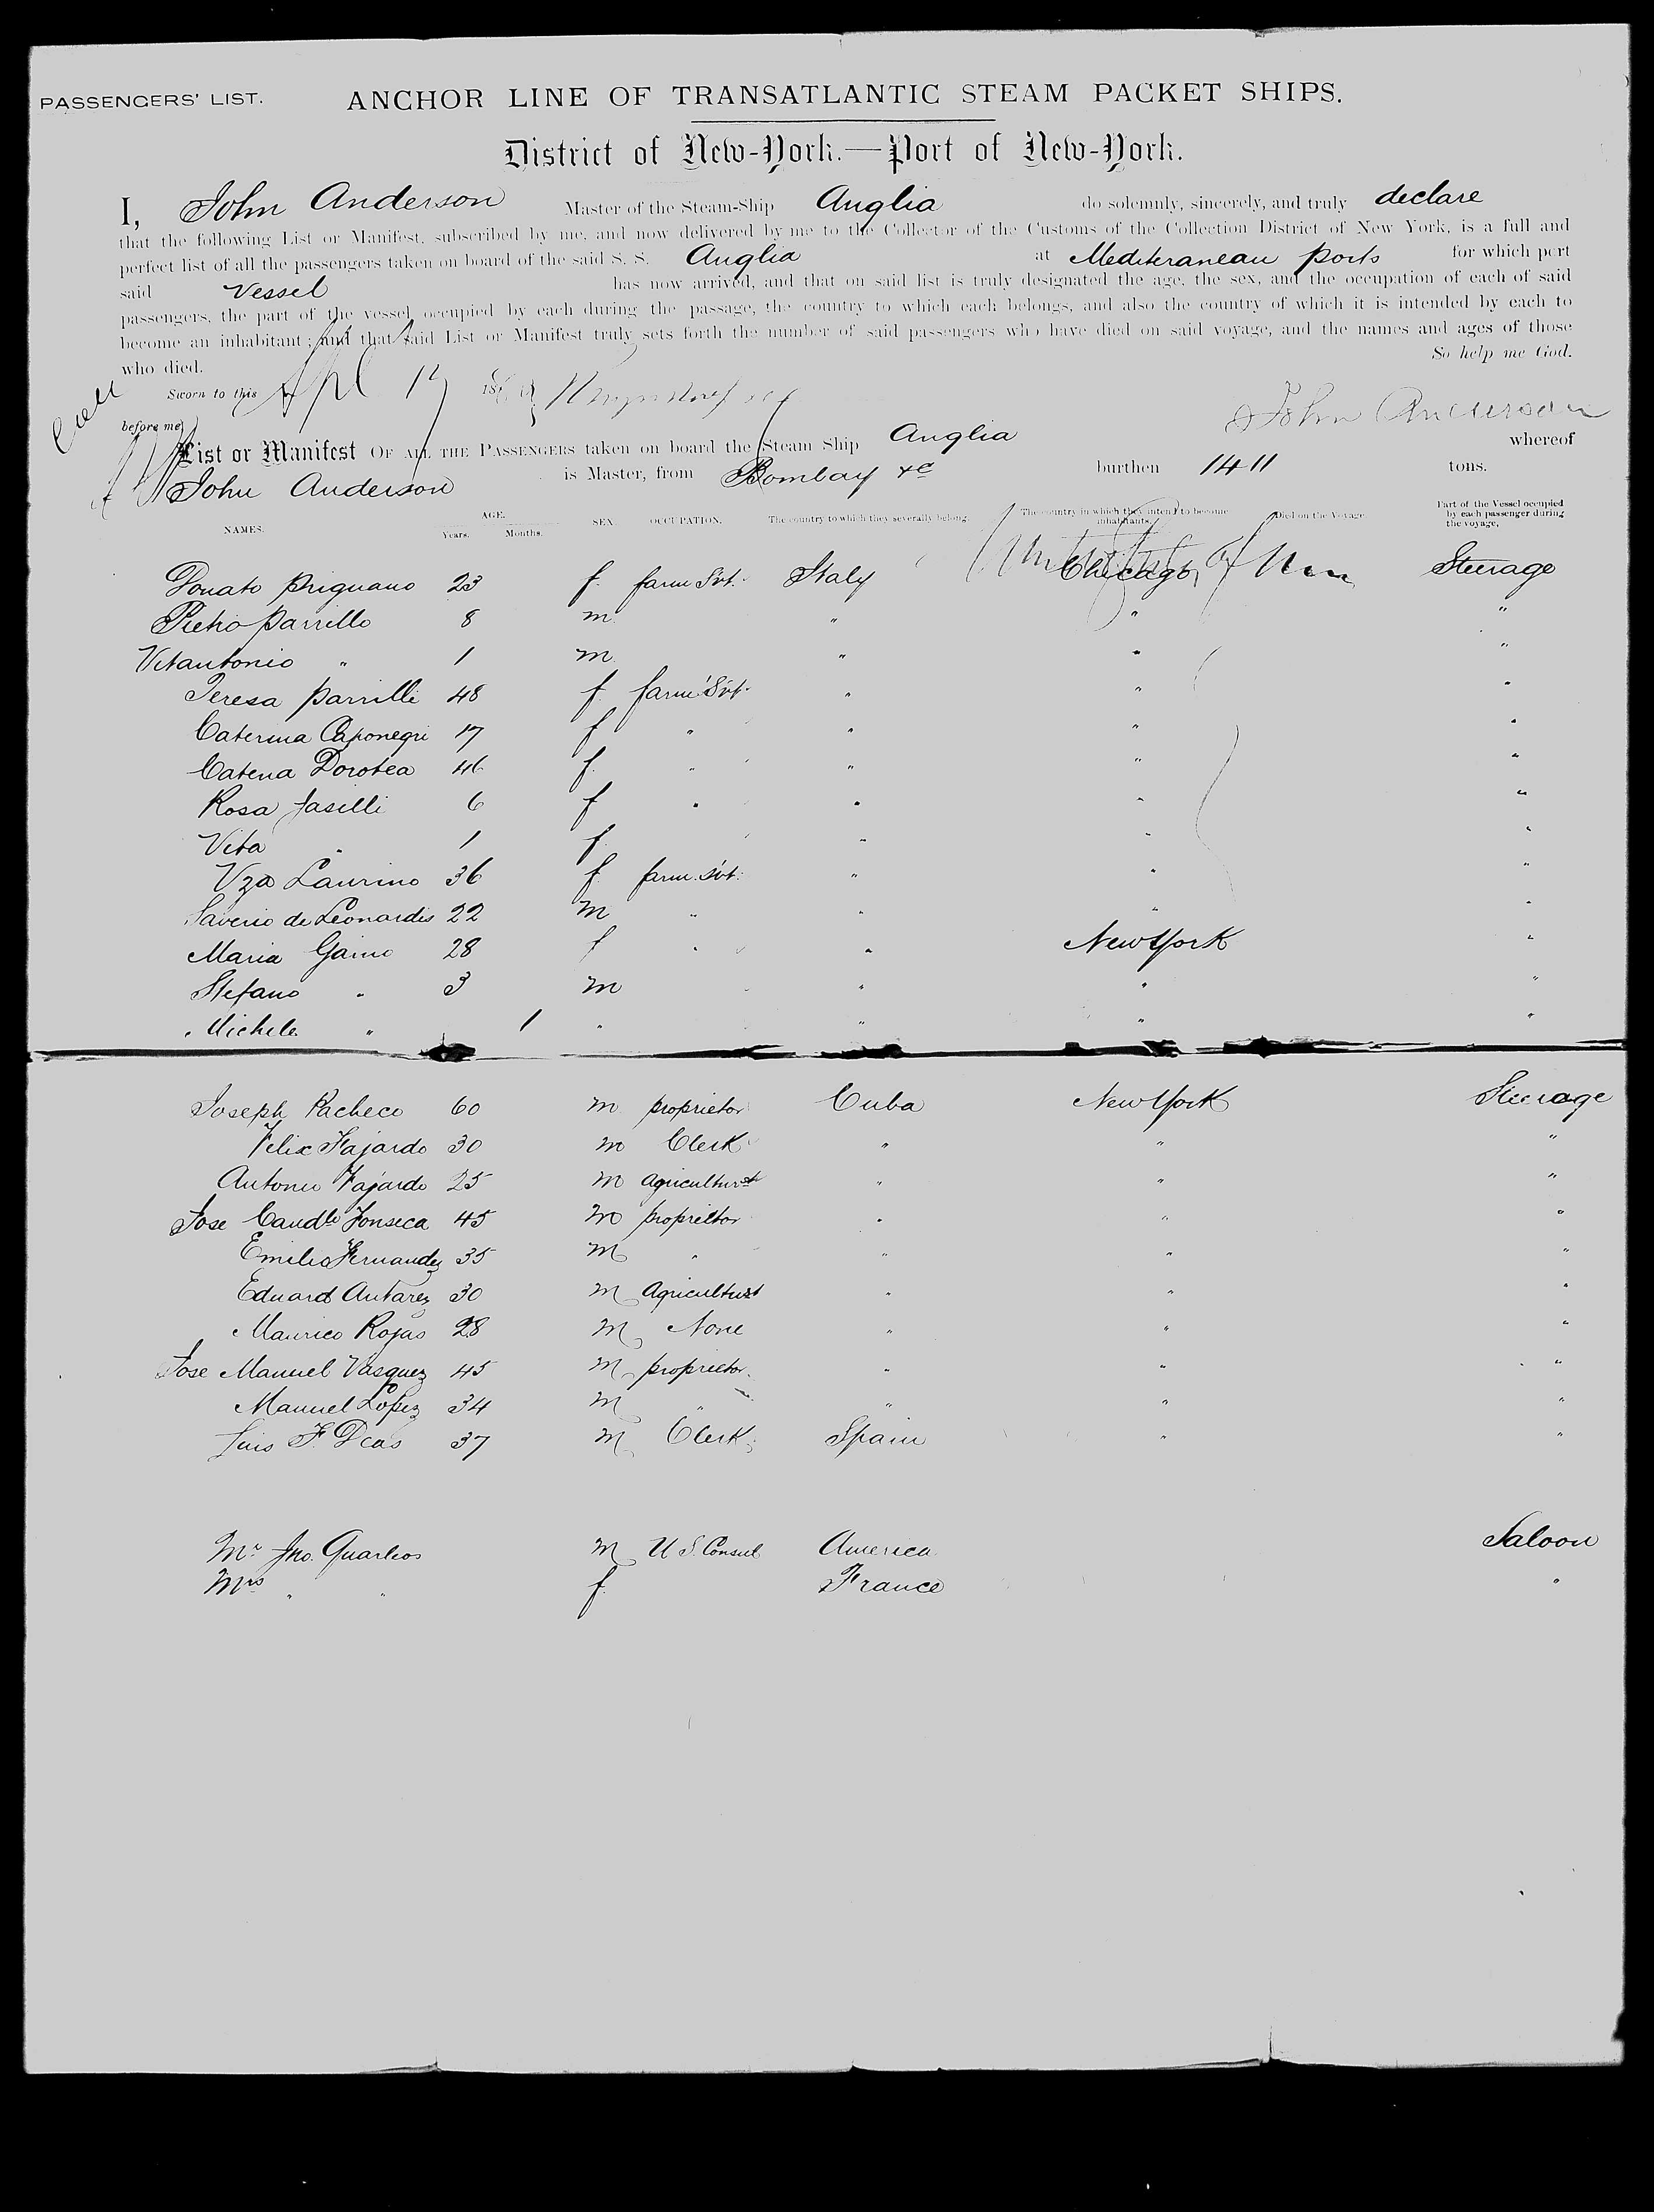 PASSENGERS' LIST. ANCHOR LINE OF TRANSATLANTIC STEAM PACKET SHIPS.
District of New-York.—Port of New-York.
I, John Anderson Master of the Steam-Ship Anglia do solemnly, sincerely, and truly declare
that the following List or Manifest, subscribed by me, and now delivered by me to the Collector of the Customs of the Collection District of New York, is a full and
perfect list of all the passengers taken on board of the said S. S. Anglia at Mediteranean ports for which port
said Vessel has now arrived, and that on said list is truly designated the age, the sex, and the occupation of each of said
passengers, the part of the vessel occupied by each during the passage, the country to which each belongs, and also the country of which it is intended by each to
become an inhabitant; and that said List or Manifest truly sets forth the number of said passengers who have died on said voyage, and the names and ages of those
who died. So help me God.
Sworn to this Apl 17 18
before me, John Anderson
List or Manifest OF ALL THE PASSENGERS taken on board the Steam Ship Anglia whereof
John Anderson is Master, from Bombay &c burthen 1411 tons.
NAMES. AGE. Years. Months. SEX. OCCUPATION. The country to which they severally belong. The country in which they intend to become inhabitants. Died on the Voyage. Part of the Vessel occupied by each passenger during the voyage.
Donato Prignano 23 f. farm Svt. Italy Chicago Steerage
Pietro Parrillo 8 m. " " "
Vitantonio " 1 m " " "
Teresa Parrilli 48 f. farm Svt. " " "
Caterina Caponegri 17 f " " " "
Catena Dorotea 46 f. " " " "
Rosa Jasilli 6 f " " " "
Vita " 1 f. " " "
Vza Laurino 36 f. farm. Svt. " " "
Saverio de Leonardis 22 m " " " "
Maria Gaino 28 f " " New York "
Stefano " 3 m " " "
Michele " 1 " " " "
Joseph Pacheco 60 m proprietor Cuba New York Steerage
Felix Fajardo 30 m Clerk " " "
Antonio Fajardo 25 m Agriculturst " " "
Jose Caudlo Fonseca 45 m proprietor " " "
Emilio Fernandez 35 m " " " "
Eduard Antarez 30 m Agriculturst " " "
Maurico Rojas 28 m None " " "
Jose Manuel Vasquez 45 m proprietor. " " "
Manuel Lopez 34 m " " " "
Luis F. Deas 37 m Clerk Spain " "
Mr Jno. Quarles m U S. Consul America Saloon
Mrs " " f. France "